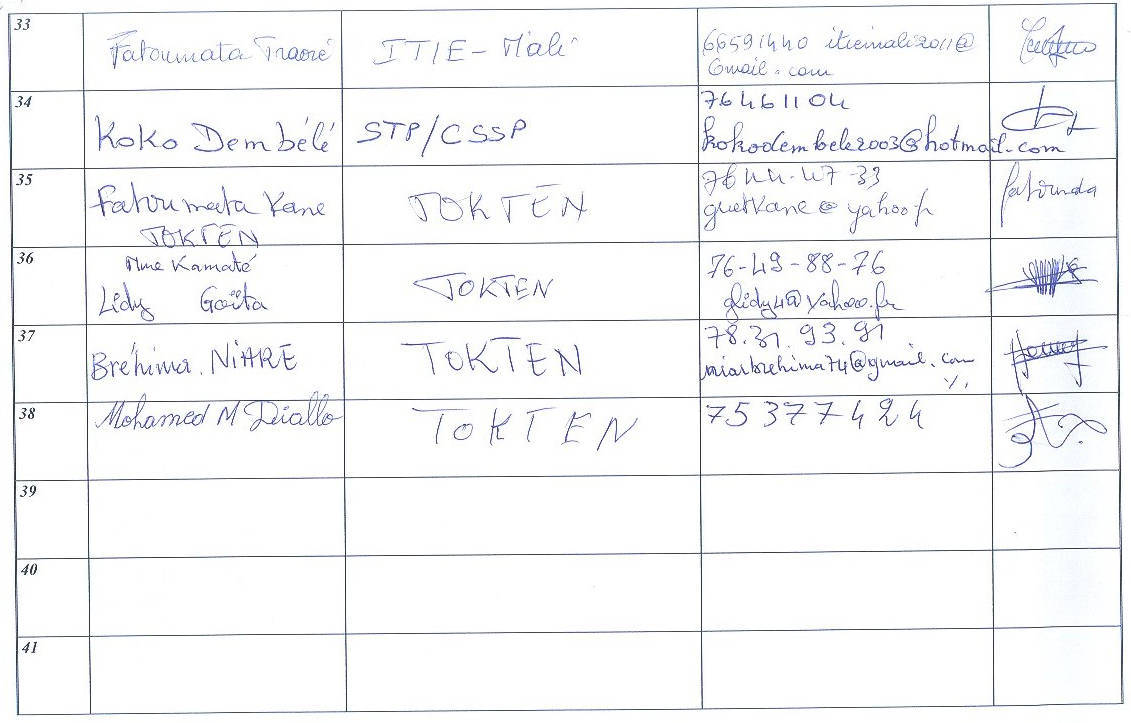 33 Fatoumata Traoré ITIE-Mali 66591440 itiemali2011@
Gmail.com
34 Koko Dembélé STP/CSSP 76461104
kokodembele2003@hotmail.com
35 Fatoumata Kane TOKTEN 76 44-47-33
TOKTEN guetkane@yahoo.fr
36 Mme Kamaté
Lidy Goïta TOKTEN 76-49-88-76
glidy4@yahoo.fr
37 Bréhima NIARE TOKTEN 78.31.93.91
niarbrehima74@gmail.com
38 Mohamed M Diallo TOKTEN 75377424
39
40
41